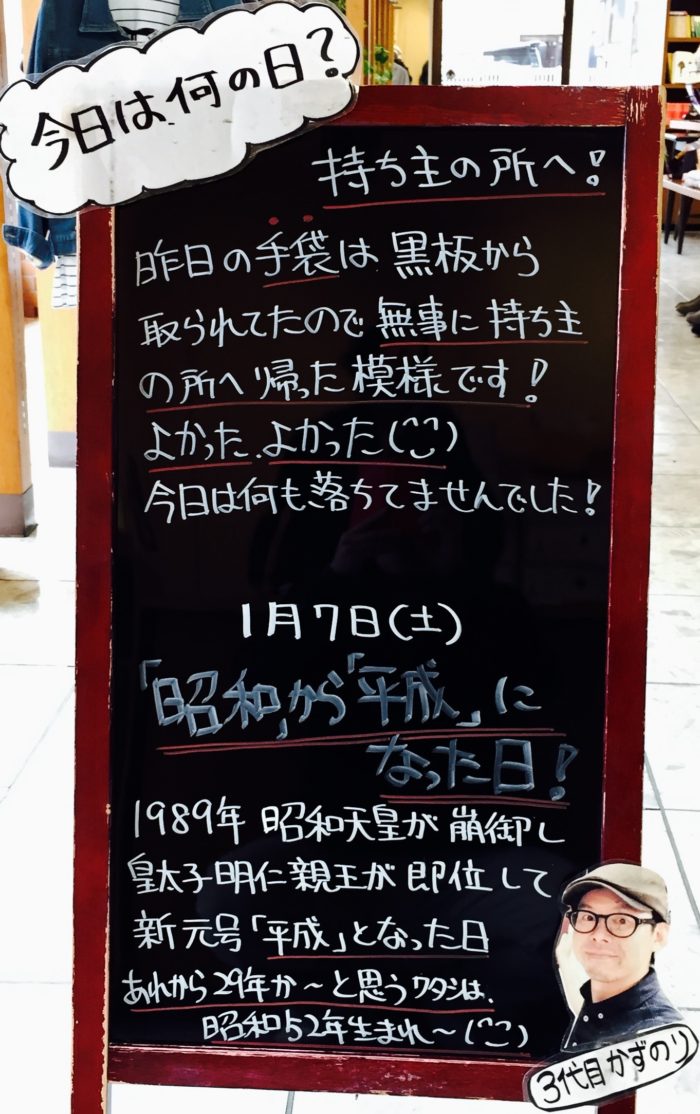 今日は何の日?
持ち主の所へ!
昨日の手袋は黒板から
取られてたので無事に持ち主
の所へ帰った模様です!
よかった.よかった(^^)
今日は何も落ちてませんでした!
1月7日(土)
「昭和」から「平成」に
なった日!
1989年 昭和天皇が崩御し
皇太子明仁親王が即位して
新元号「平成」となった日
あれから29年か～と思うワタシは、
昭和52年生まれ～(^^)
3代目かずのり